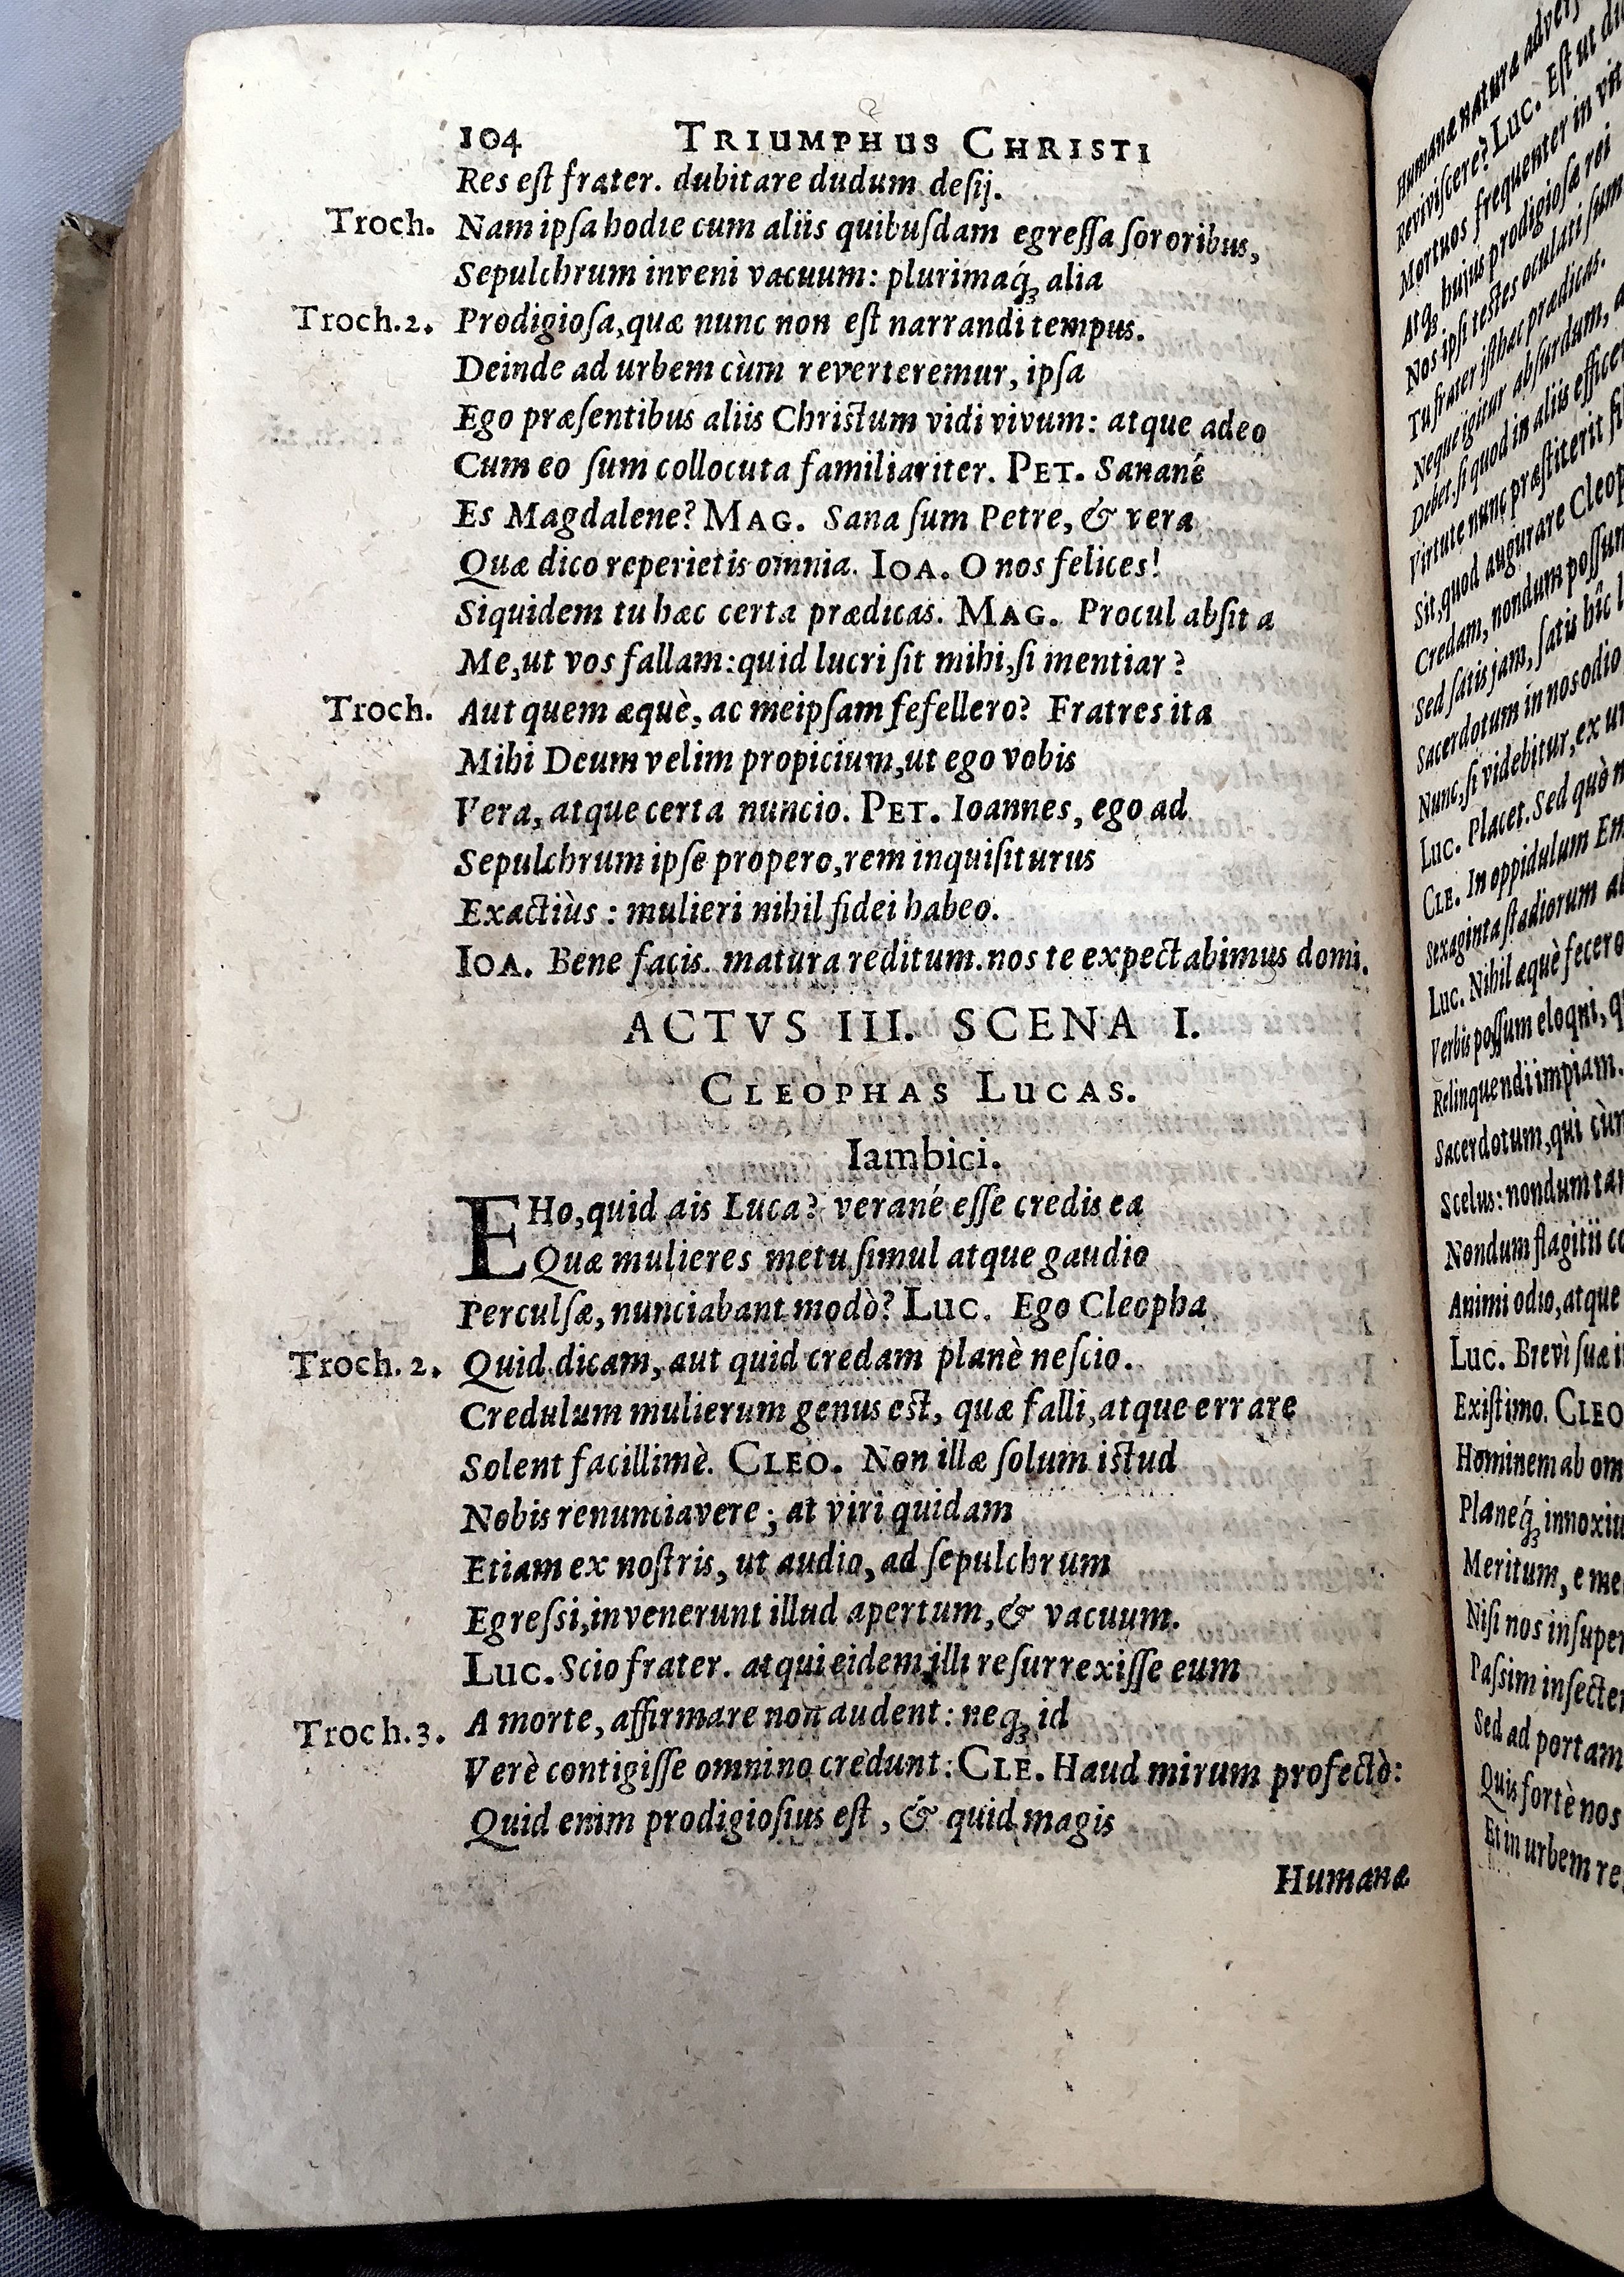 104 TRIUMPHUS CHRISTI
Res eſt frater. dubitare dudum deſij.
Troch. Nam ipſa hodie cum aliis quibuſdam egreſſa ſororibus,
Sepulchrum inveni vacuum: plurimaq́ꝫ alia
Troch. 2. Prodigioſa, quæ nunc non eſt narrandi tempus.
Deinde ad urbem cùm reverteremur, ipſa
Ego præſentibus aliis Chriſtum vidi vivum: atque adeo
Cum eo ſum collocuta familiariter. PET. Sanané
Es Magdalene? MAG. Sana ſum Petre, & vera
Quæ dico reperietis omnia. IOA. O nos felices!
Siquidem tu hæc certa prædicas. MAG. Procul abſit a
Me, ut vos fallam: quid lucri ſit mihi, ſi mentiar?
Troch. Aut quem æquè, ac meipſam fefellero? Fratres ita
Mihi Deum velim propicium, ut ego vobis
Vera, atque certa nuncio. PET. Ioannes, ego ad
Sepulchrum ipſe propero, rem inquiſiturus
Exactiùs: mulieri nihil fidei habeo.
IOA. Bene facis. matura reditum. nos te expectabimus domi.
ACTVS III. SCENA I.
CLEOPHAS LUCAS.
Iambici.
EHo, quid ais Luca? verané eſſe credis ea
Quæ mulieres metu ſimul atque gaudio
Perculſæ, nunciabant modò? LUC. Ego Cleopha
Troch. 2. Quid dicam, aut quid credam planè neſcio.
Credulum mulierum genus eſt, quæ falli, atque errare
Solent facillimè. CLEO. Non illæ ſolum iſtud
Nobis renunciavere; at viri quidam
Etiam ex noſtris, ut audio, ad ſepulchrum
Egreſſi, invenerunt illud apertum, & vacuum.
LUC. Scio frater. atqui eidem illi reſurrexiſſe eum
Troch. 3. A morte, affirmare non audent: neqꝫ id
Verè contigiſſe omnino credunt: CLE. Haud mirum profectò:
Quid enim prodigioſius eſt, & quid magis
Humanæ
Humanæ naturæ
Reviviſcere? LUC. Eſt ut
Mortuos frequenter in
Atqꝫ hujus prodigioſæ rei
Nos ipſi teſtes oculati
Tu frater iſthæc prædicas.
Neque igitur abſurdum,
Debet, ſi quod in aliis
Virtute nunc præſtiterit
Sit, quod augurare
Credam, nondum
Sed ſatis jam, ſatis hîc
Sacerdotum in nos odio
Nunc, ſi videbitur, ex
LUC. Placet. Sed quò
CLE. In oppidulum
Sexaginta ſtadiorum
LUC. Nihil æquè fecero
Verbis poſſum eloqni,
Relinquendi impiam.
Sacerdotum, qui cùm
Scelus: nondum
Nondum flagitii
Animi odio, atque
LUC. Brevì ſuæ
Exiſtimo. CLEO
Hominem ab
Planeq́ꝫ
Meritum, e
Niſi nos
Paſſim
Sed ad portam
Quis fortè nos
Et in urbem